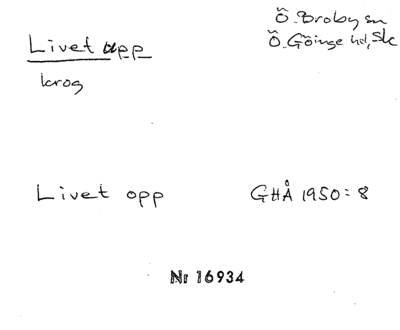 Livet upp
krog
Ö. Broby sn
Ö. Göinge hd, Sk
Livet opp
GHÅ 1950: 8
Nr 16934